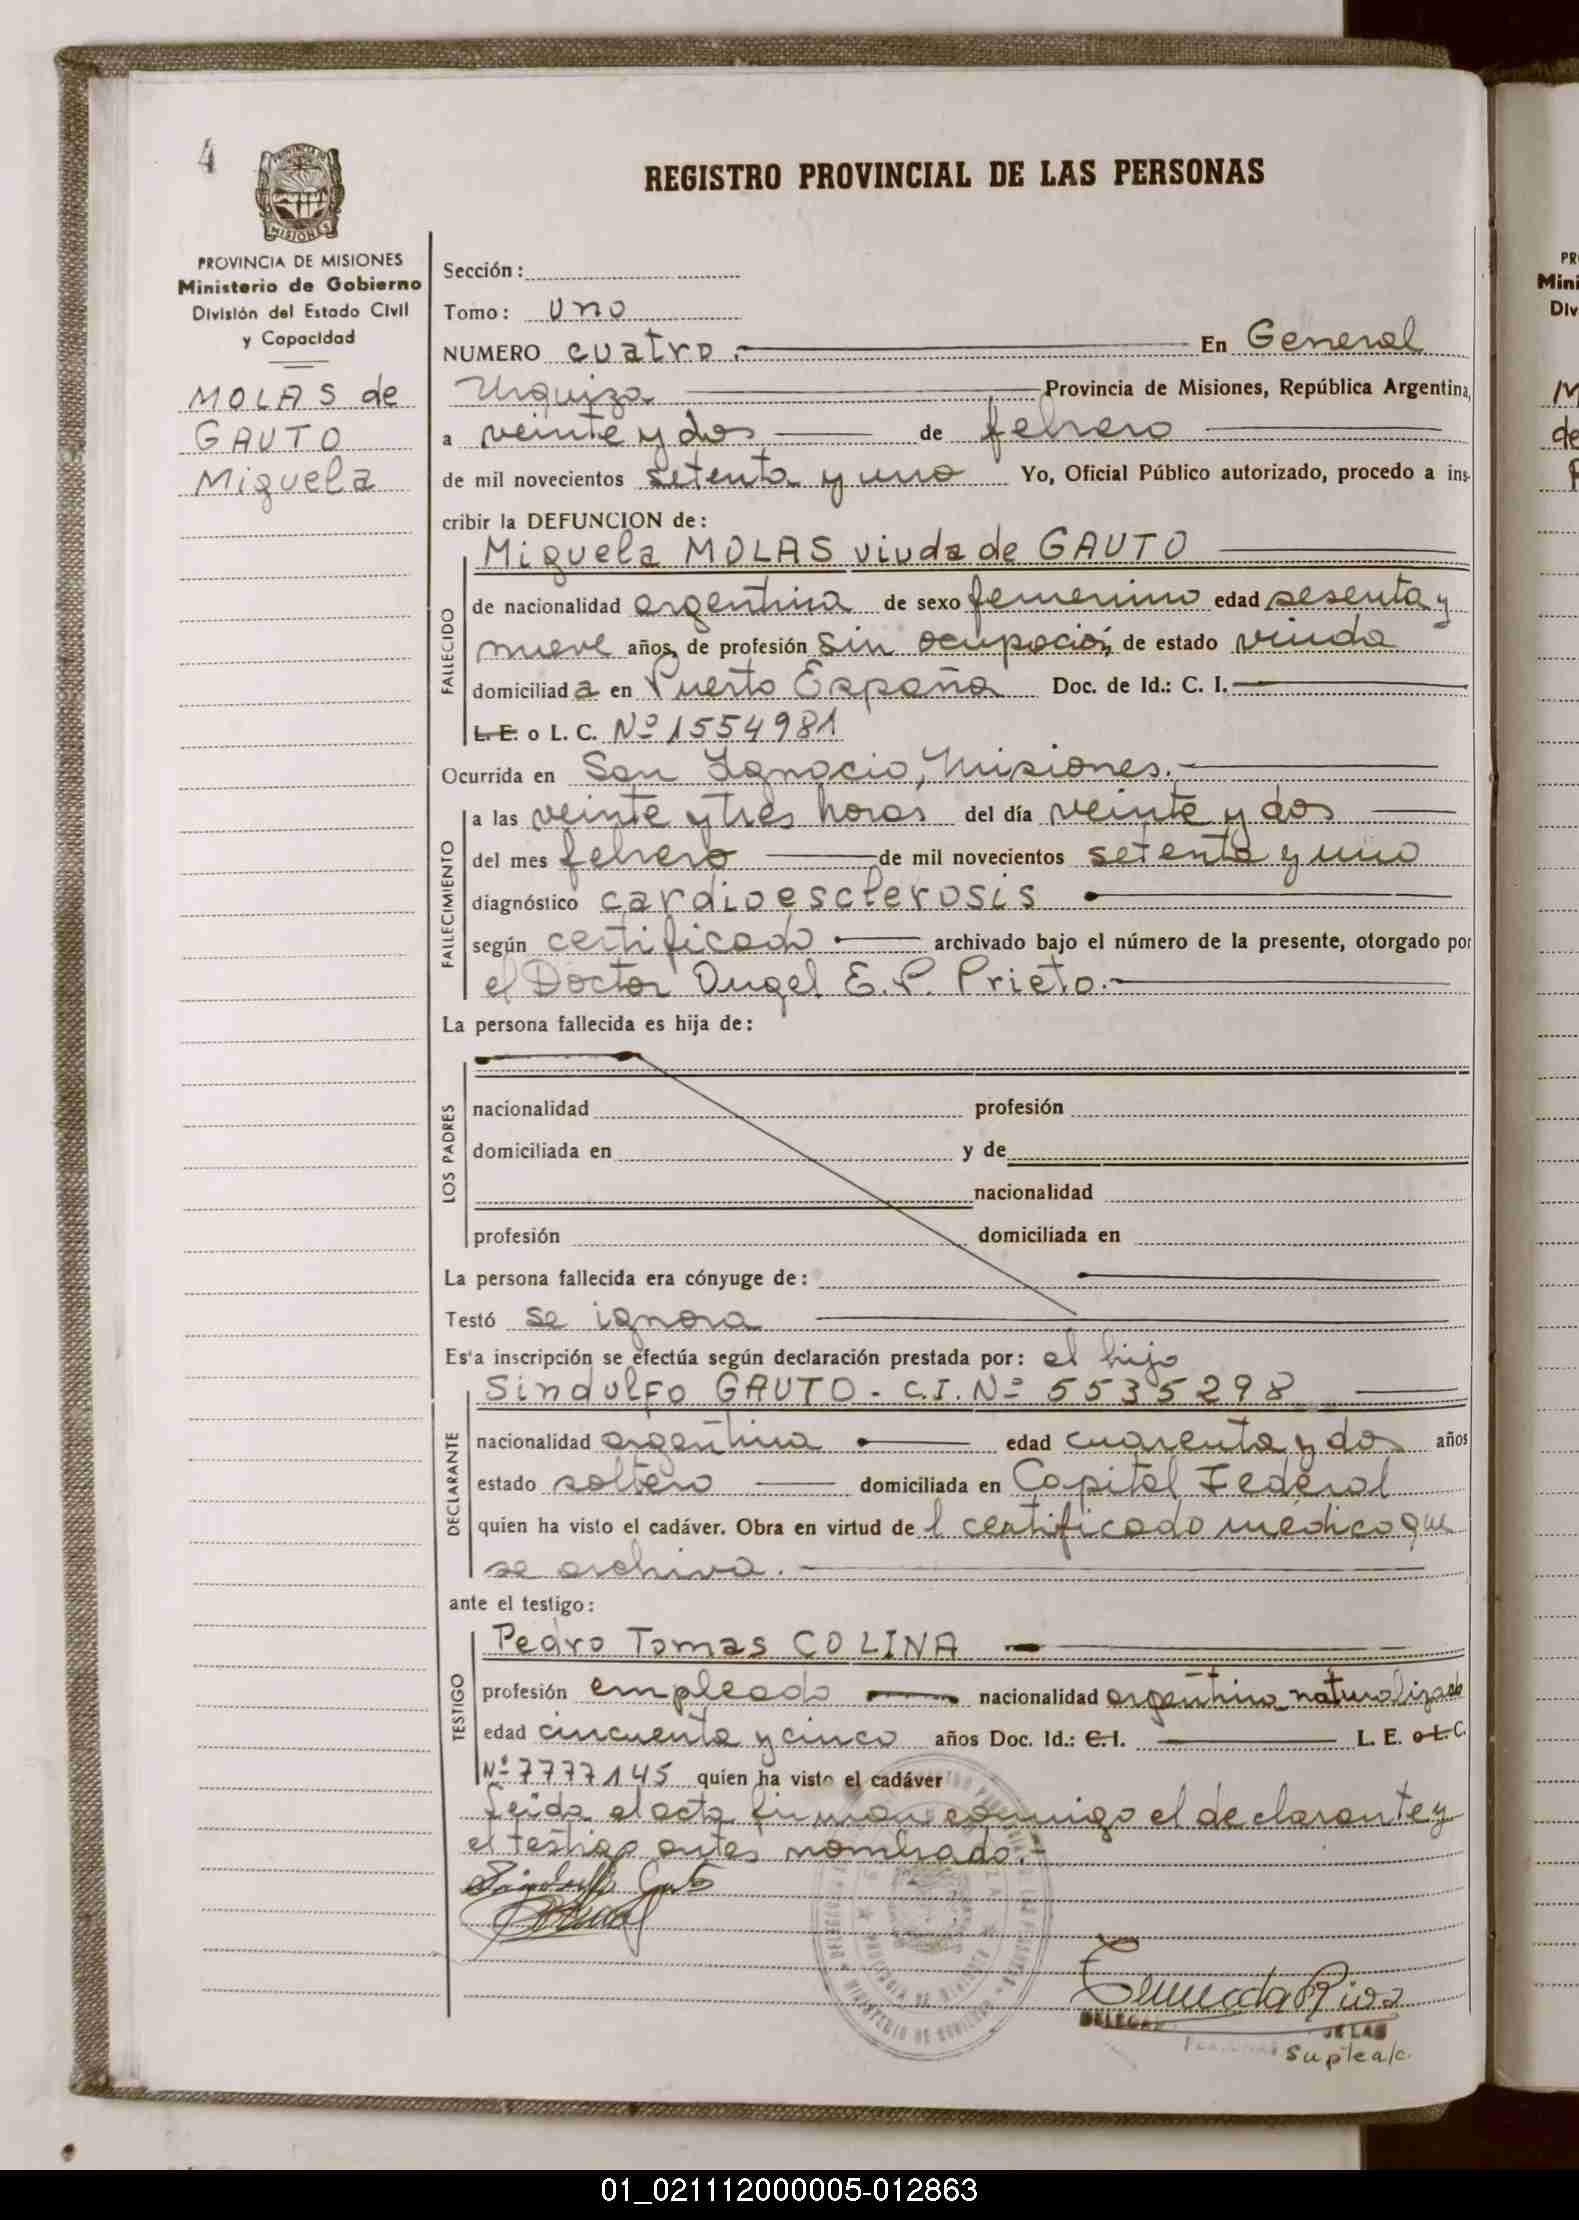 4
PROVINCIA DE MISIONES
Ministerio de Gobierno
División del Estado Civil
y Capacidad
MOLAS de
GAUTO
Miguela
REGISTRO PROVINCIAL DE LAS PERSONAS
Sección:
Tomo: uno
NUMERO cuatro.— En General
Urquiza — Provincia de Misiones, República Argentina,
a veinte y dos — de febrero —
de mil novecientos setenta y uno Yo, Oficial Público autorizado, procedo a ins-
cribir la DEFUNCION de:
Miguela MOLAS viuda de GAUTO —
FALLECIDO
de nacionalidad argentina de sexo femenino edad sesenta y
nueve años, de profesión sin ocupación, de estado viuda
domiciliada en Puerto España Doc. de Id.: C. I. —
L. E. o L. C. Nº 1554981
Ocurrida en San Ignacio, Misiones.—
FALLECIMIENTO
a las veinte y tres horas del día veinte y dos —
del mes febrero — de mil novecientos setenta y uno
diagnóstico cardioesclerosis —
según certificado — archivado bajo el número de la presente, otorgado por
el Doctor Angel E. P. Prieto.—
La persona fallecida es hija de:
LOS PADRES
nacionalidad profesión
domiciliada en y de
nacionalidad
profesión domiciliada en
La persona fallecida era cónyuge de: —
Testó se ignora —
Es'a inscripción se efectúa según declaración prestada por: el hijo
Sindulfo GAUTO - C.I. Nº 5535298 —
DECLARANTE
nacionalidad argentina — edad cuarenta y dos años
estado soltero — domiciliada en Capital Federal
quien ha visto el cadáver. Obra en virtud del certificado médico que
se archiva.—
ante el testigo:
Pedro Tomas COLINA —
TESTIGO
profesión empleado — nacionalidad argentina naturalizado
edad cincuenta y cinco años Doc. Id.: C.I. — L. E. o L.C.
Nº 7777145 quien ha visto el cadáver
Leida el acta firman conmigo el declarante y
el testigo antes nombrado.-
Sindulfo Gauto
DELEGA DE LAS
Suple a/c.
01_021112000005-012863